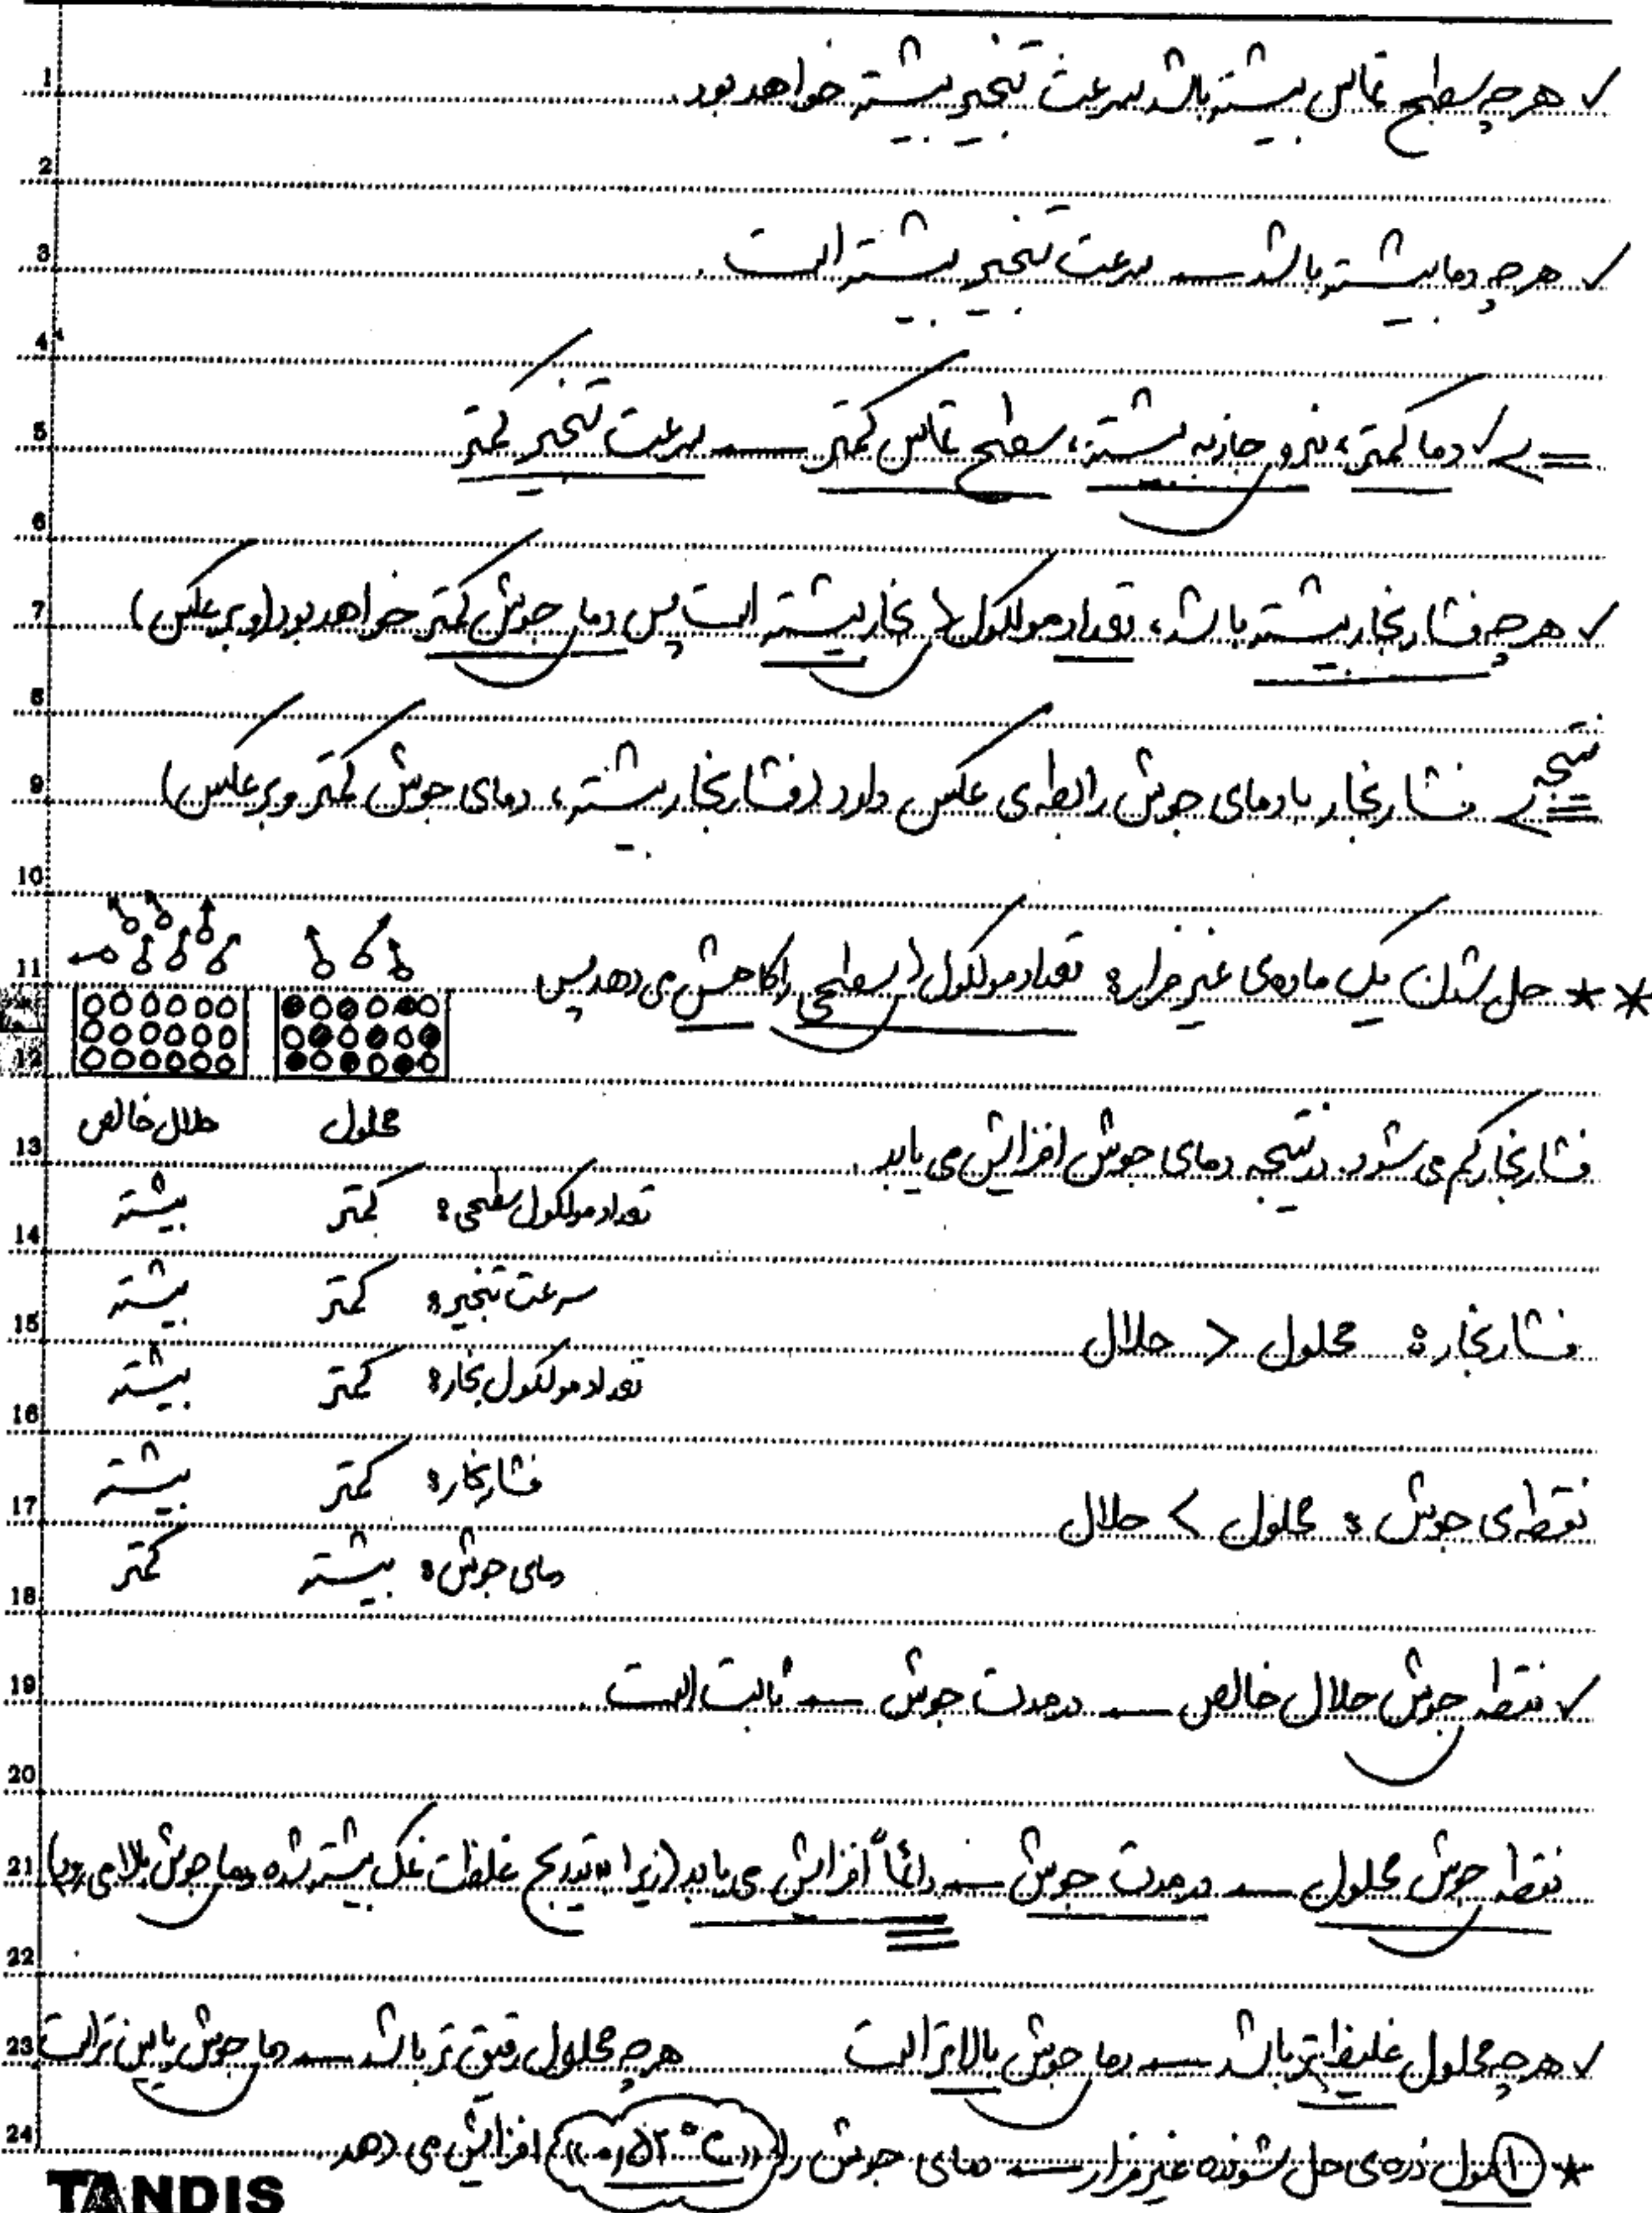 ✓ هرچه سطح تماس بیشتر باشد سرعت تبخیر بیشتر خواهد بود.
✓ هرچه دما بیشتر باشد — سرعت تبخیر بیشتر است.
⇐ ✓ دما کمتر، نیرو جاذبه بیشتر، سطح تماس کمتر — سرعت تبخیر کمتر
✓ هرچه فشار بخار بیشتر باشد، تعداد مولکول‌ها بخار بیشتر است پس دما جوش کمتر خواهد بود (و برعکس)
نتیجه ⇐ فشار بخار با دمای جوش رابطه‌ی عکس دارد (فشار بخار بیشتر، دمای جوش کمتر و برعکس)
** حل شدن یک ماده‌ی غیرفرار: تعداد مولکول‌ها سطحی را کاهش می‌دهد پس
فشار بخار کم می‌شود. در نتیجه دمای جوش افزایش می‌یابد.
محلول حلال خالص
تعداد مولکول سطحی: کمتر بیشتر
سرعت تبخیر: کمتر بیشتر
تعداد مولکول بخار: کمتر بیشتر
فشار بخار: کمتر بیشتر
دمای جوش: بیشتر کمتر
فشار بخار: محلول < حلال
نقطه‌ی جوش: محلول > حلال
✓ نقطه جوش حلال خالص — در مدت جوش — ثابت است
نقطه جوش محلول — در مدت جوش — دائماً افزایش می‌یابد (زیرا به تدریج غلظت نمک بیشتر شده دما جوش بالا می‌رود)
✓ هرچه محلول غلیظ‌تر باشد — دما جوش بالاتر است هرچه محلول رقیق‌تر باشد — دما جوش پایین‌تر است
* ۱ مول ذره‌ی حل شونده غیرفرار — دمای جوش را «۰٫۵۲°C» افزایش می‌دهد
1
2
3
4
5
6
7
8
9
10
11
12
13
14
15
16
17
18
19
20
21
22
23
24
TANDIS